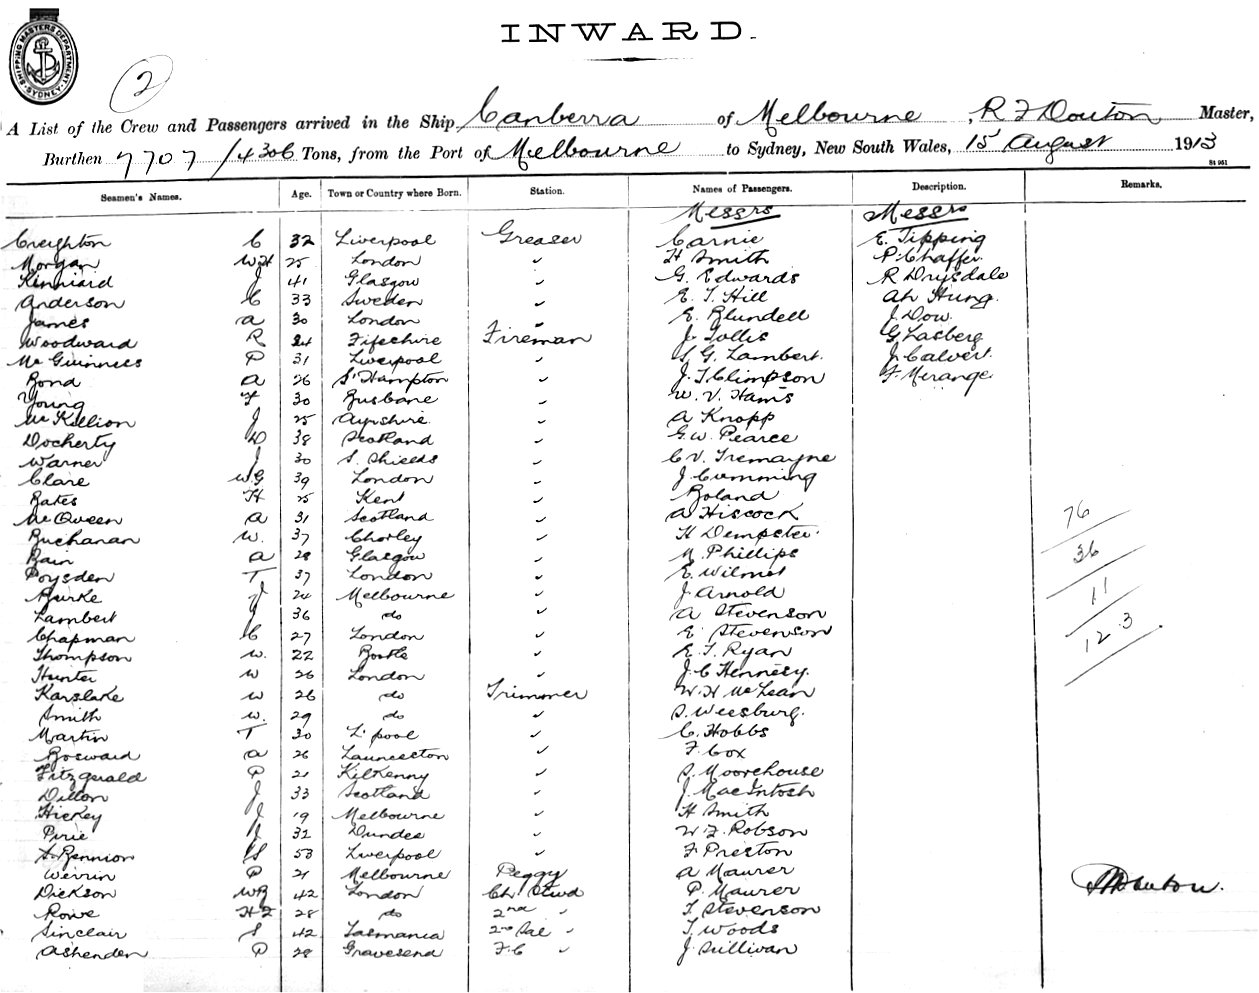 INWARD.
SHIPPING MASTERS DEPARTMENT SYDNEY
2
A List of the Crew and Passengers arrived in the Ship Canberra of Melbourne, R F Douton Master,
Burthen 7707/4306 Tons, from the Port of Melbourne to Sydney, New South Wales, 15 August 1913
St 951
Seamen's Names. Age. Town or Country where Born. Station. Names of Passengers. Description. Remarks.
Messrs Messrs
Creighton C 32 Liverpool Greaser Carnie E. Tipping
Morgan W H 25 London " H Smith P. Chaffer
Kinniard J 41 Glasgow " G. Edwards R Drysdale
Anderson C 33 Sweden " E. T. Hill Ah Hung
James A 30 London " E. Blundell J. Dow.
Woodward R 24 Fifeshire Fireman J. Tollis G Lasberg
McGuinness P 31 Liverpool " S. G. Lambert. J. Calvert.
Bond A 26 S'Hampton " J. T. Climpson F. Merange
Young F 30 Brisbane " W. V. Hams
McKillion J 25 Ayrshire " A Knopp
Docherty D 38 Scotland " G. W. Pearce
Warner J 30 S. Shields " C. V. Tremayne
Clare W G 39 London " J. Cumming
Bates H 25 Kent " Boland
McQueen A 31 Scotland " A Hiscock 76
Buchanan W. 37 Chorley " H Dempster.
Bain A 28 Glasgow " M. Phillips 36
Poysden T 37 London " E. Wilmot
Burke J 24 Melbourne " J. Arnold 11
Lambert J 36 do " A Stevenson
Chapman C 27 London " E. Stevenson 123
Thompson W. 22 Bootle " E. T. Ryan
Hunter W 26 London " J. C Hennesy.
Karslake W 26 do Trimmer W. H McLean
Smith W. 29 do " S. Weesburg.
Martin T 30 L'pool " C. Hobbs
Bosward A 26 Launceston " F. Cox
Fitzgerald P 21 Kilkenny " S. Moorehouse
Dillon J 33 Scotland " J. MacIntosh
Hickey J 19 Melbourne " H Smith
Pirie J 32 Dundee " W. F. Robson
S. Rennion 53 Liverpool " F Preston
Werrin P 21 Melbourne Peggy A Maurer
Dickson W B 42 London Ch. Stwd P. Maurer
Rowe H F 28 do 2nd " T. Stevenson
Sinclair S 42 Tasmania 2nd Sal " T. Woods
Ashenden P 28 Gravesend F. C " J. Sullivan